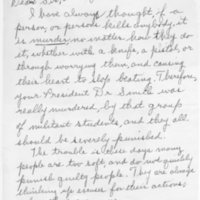 Dear Sir,
I have always thought, if a
person, or persons kills anybody, it
is murder no matter how they do
it, whether with a knife, a pistol, or
through worrying them, and causing
their heart to stop beating. Therefore,
your President Dr Smith was
really murdered by that group
of militant students, and they all
should be severely punished.
The trouble is these days many
people are too soft, and do not quickly
punish guilty people. They are always
thinking up excuses for their actions,